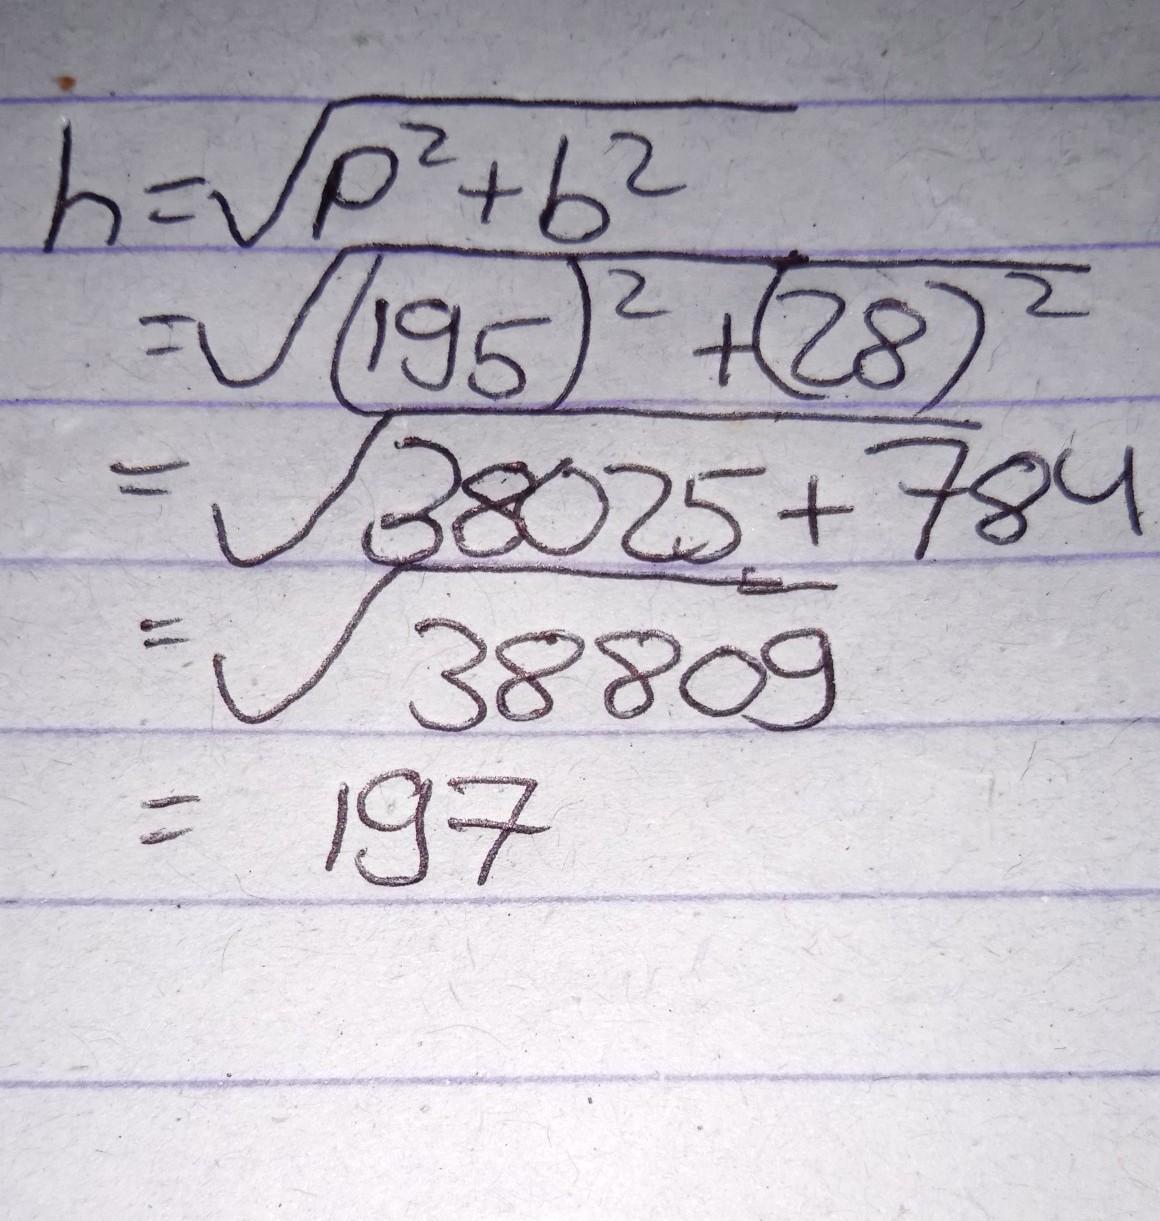 h=√p²+b²
=√(195)²+(28)²
=√38025+784
=√38809
= 197